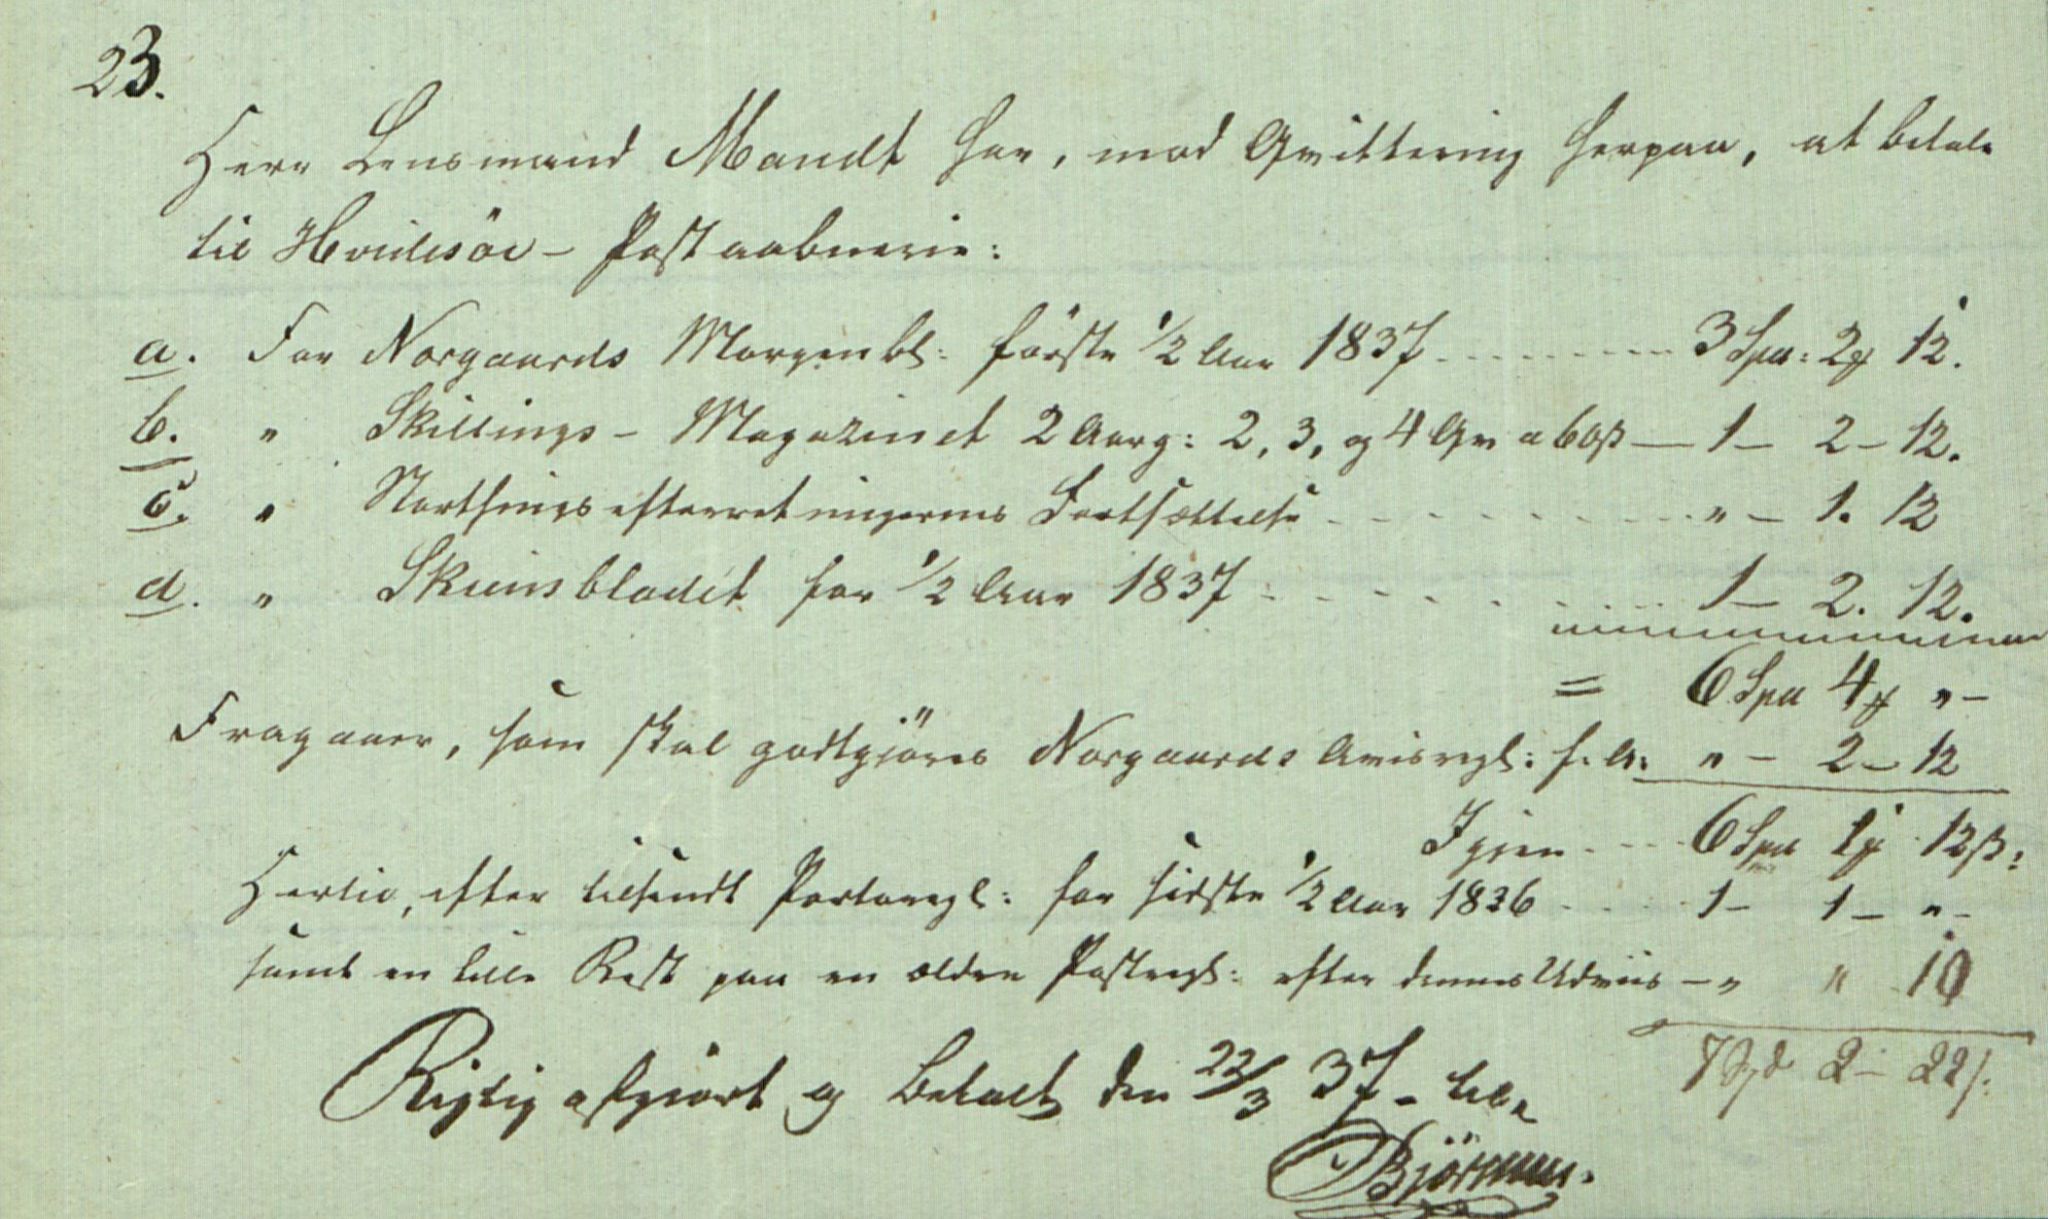 23.
Herr Lensmand Mandt har, mod Qvittering herpaa, at betale
til Hvidesöe - Postaabnerie:
a. For Norgaards Morgenbl: förste 1/2 Aar 1837 - - - - - - - 3 Spd: 2 ƒ 12.
b. " Skillings - Magazinet 2 Aarg: 2, 3, og 4 Qv a 60 β — 1 - 2 - 12.
c. " Storthingsefterretningernes Fortsættelse - - - - - - - - " - 1. 12
d. " Skiensbladet for 1/2 Aar 1837 - - - - - - - 1 - 2. 12.
= 6 Spd 4 ƒ " -
Fragaaer, som skal godtgjöres Norgaards Avisregl: f. A: " - 2 - 12
Igjen - - - 6 Spd 1 ƒ 12 β:
Hertil, efter tilsendt Portoregl: for sidste 1/2 Aar 1836 - - - 1 - 1 - " -
samt en lille Rest paa en ældre Postregl: efter dennes Udviis - " " 10
7 Spd 2 - 22 β.
Rigtig afgiört og Betalt den 22/3 37 -